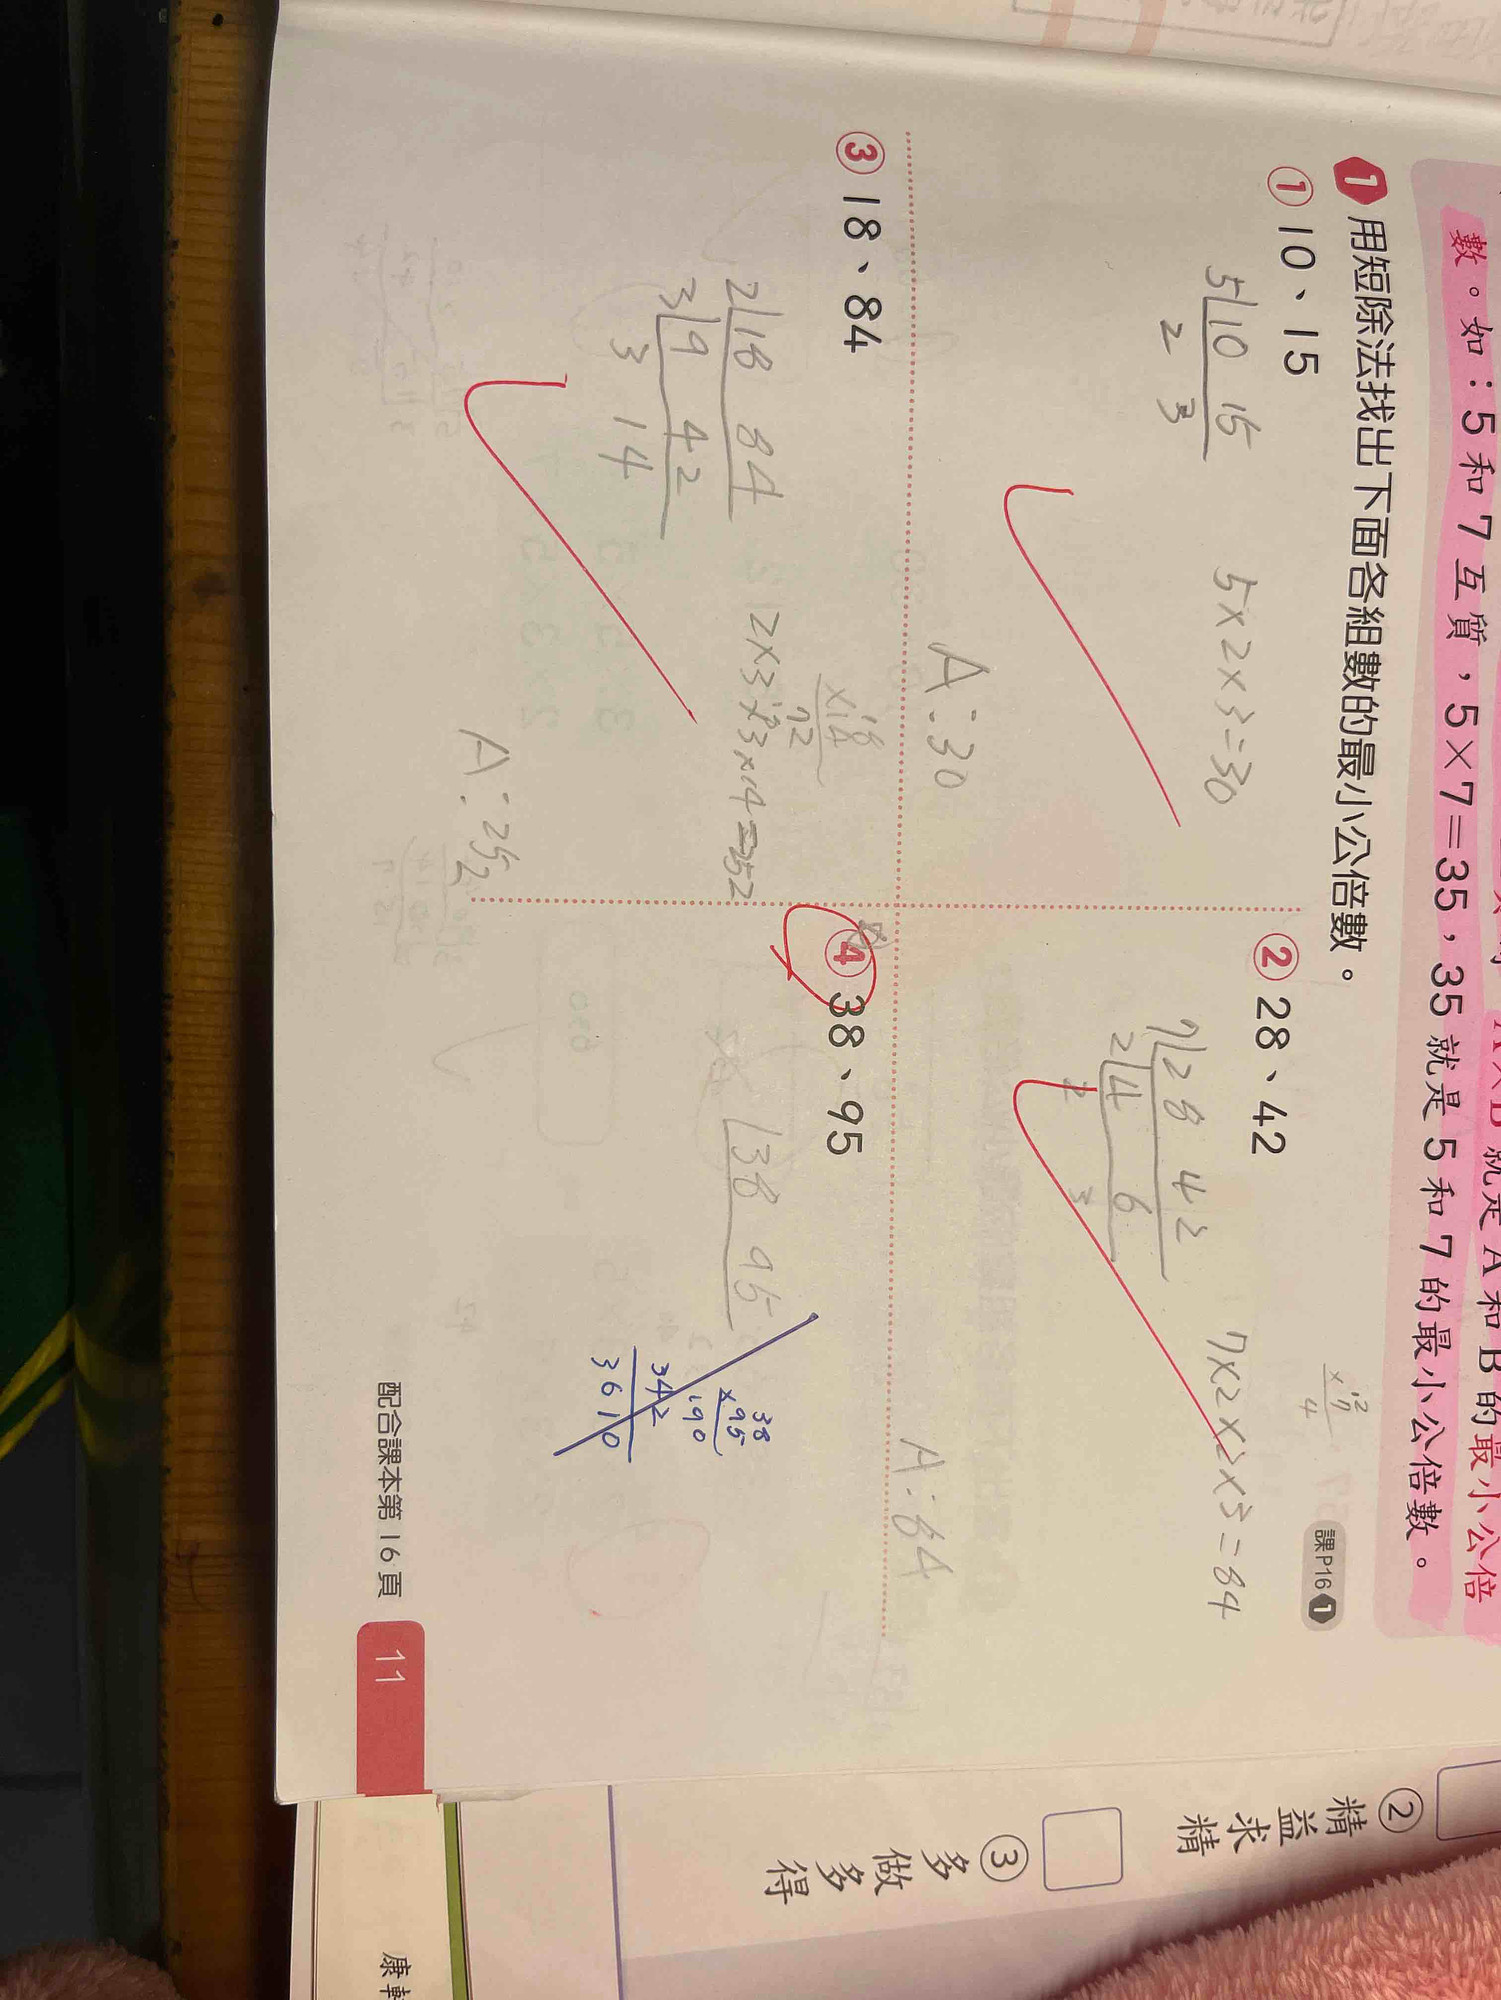 數。如：5 和 7 互質，5×7＝35，35 就是 5 和 7 的最小公倍數。
1 用短除法找出下面各組數的最小公倍數。
課P16 1
① 10、15
5 10 15
2 3
5×2×3=30
A:30
② 28、42
7 28 42
2 4 6
2 3
7×2×2×3=84
12
×7
4
A:84
③ 18、84
2 18 84
3 9 42
3 14
2×3×3×14=252
18
×14
72
A:252
④ 38、95
38 95
38
×95
190
342
3610
配合課本第 16 頁
11
②
精益求精
③
多做多得
康軒